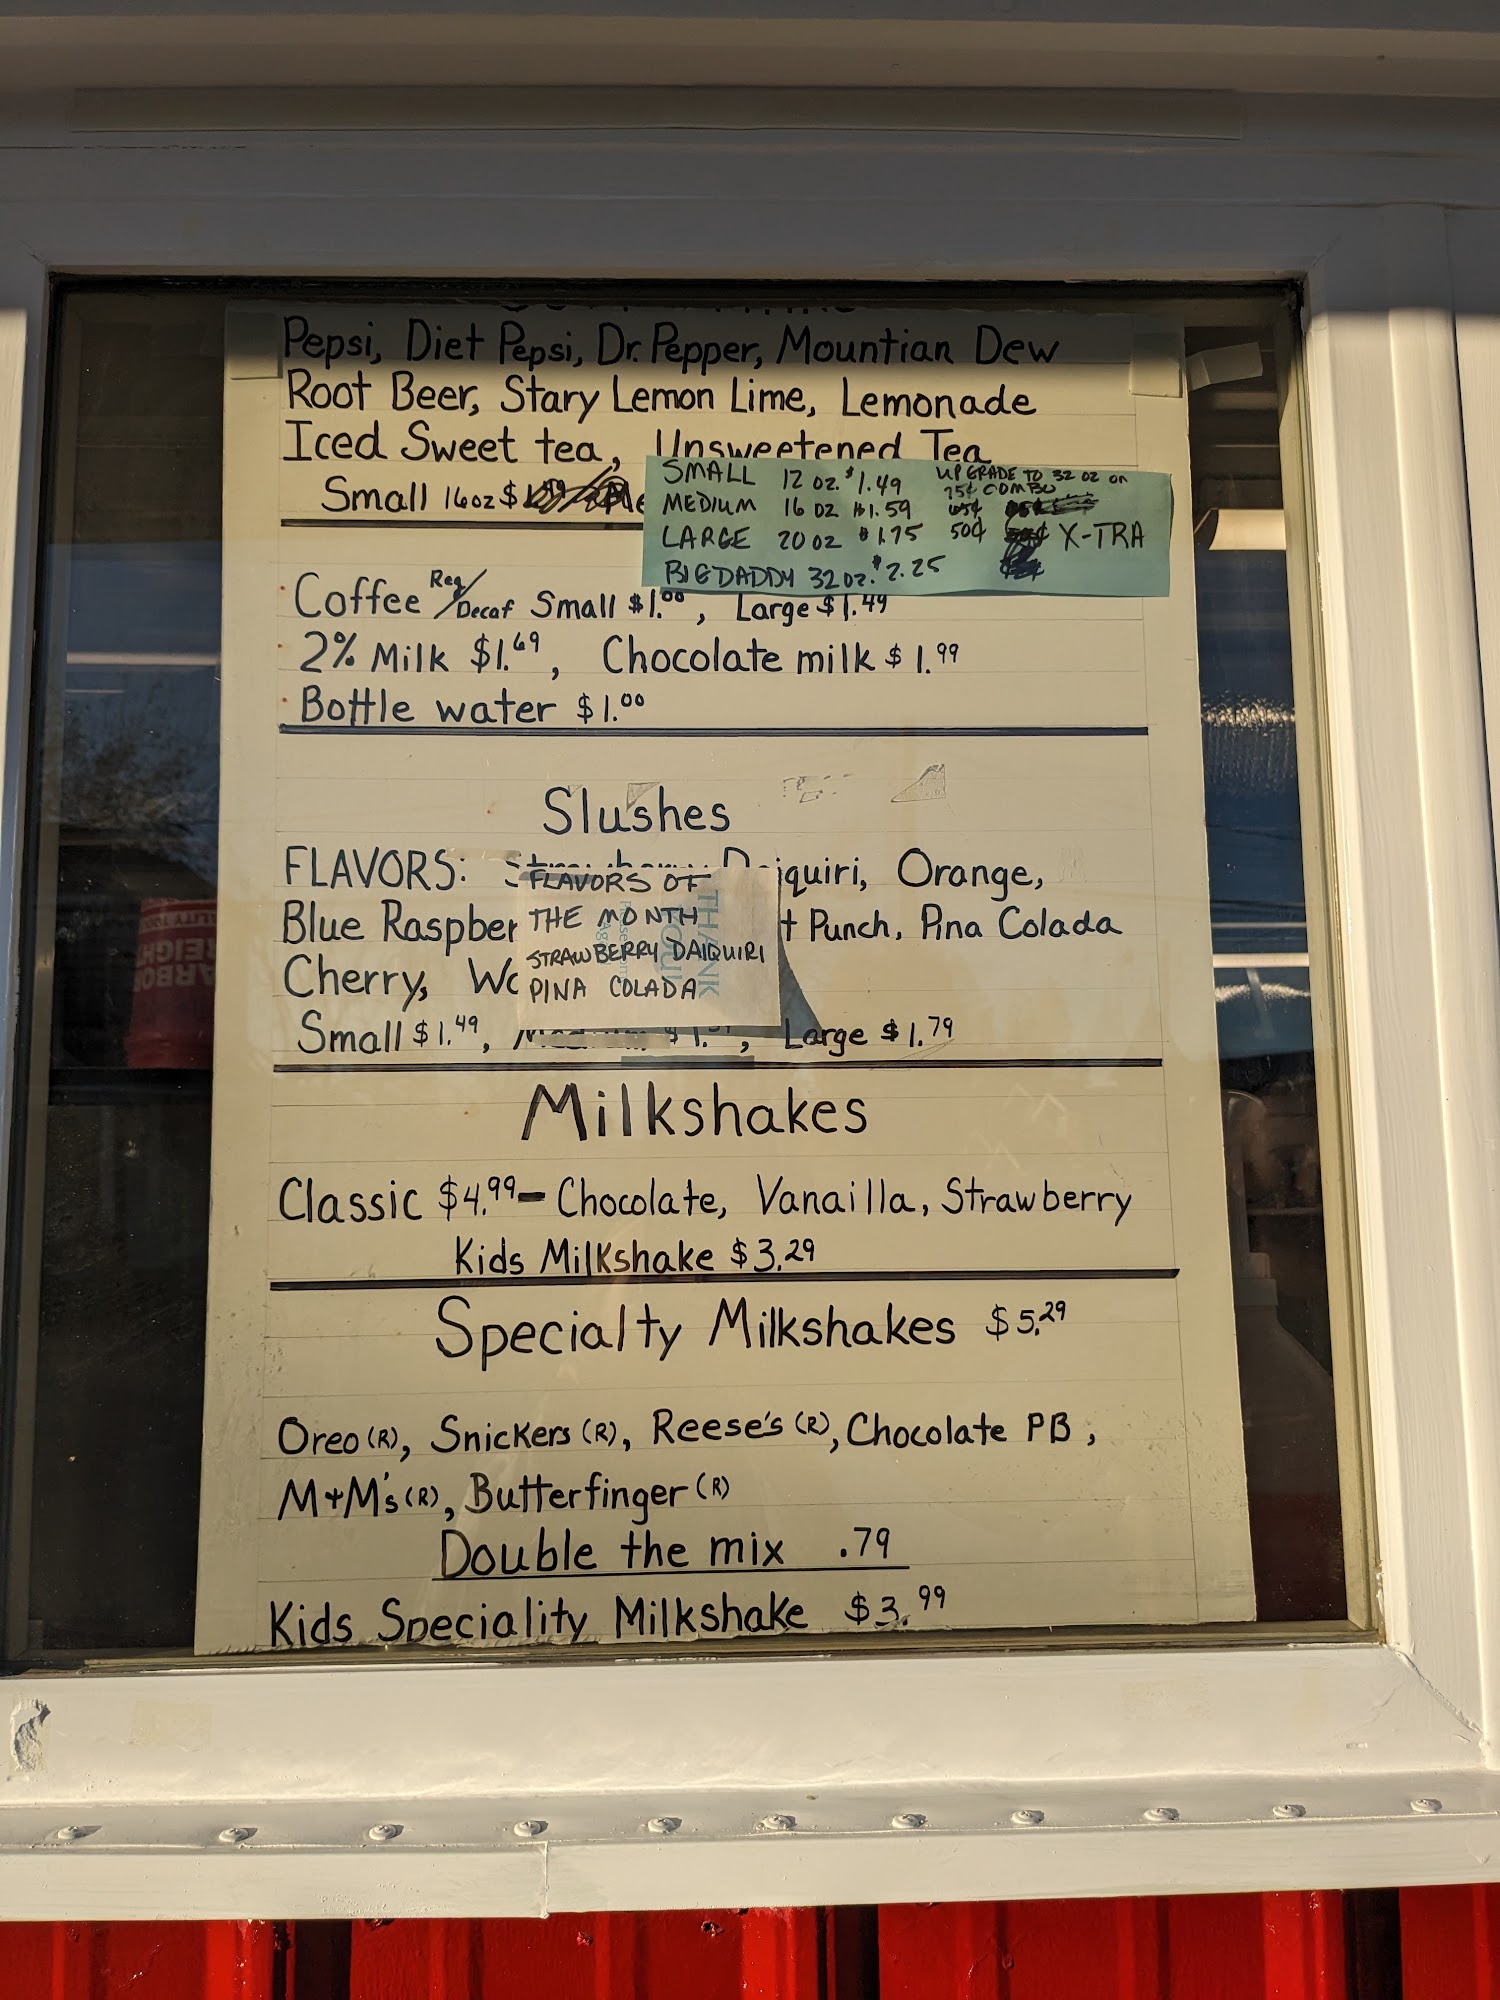 Pepsi, Diet Pepsi, Dr. Pepper, Mountian Dew
Root Beer, Stary Lemon Lime, Lemonade
Iced Sweet tea, Unsweetened Tea
Small 16oz $
SMALL 12 oz. $1.49 UPGRADE TO 32 OZ on
75¢ COMBO
MEDIUM 16 OZ $1.59 65¢
LARGE 20 oz $1.75 50¢ X-TRA
BIGDADDY 32 oz. $2.25
Coffee Reg/Decaf Small $1.00, Large $1.49
2% Milk $1.69, Chocolate milk $1.99
Bottle water $1.00
Slushes
FLAVORS: Strawberry Daiquiri, Orange,
Blue Raspber t Punch, Pina Colada
Cherry, Wa
Small $1.49, Medium $1. , Large $1.79
FLAVORS OF
THE MONTH
STRAWBERRY DAIQUIRI
PINA COLADA
THANK
YOU!
Milkshakes
Classic $4.99 - Chocolate, Vanailla, Strawberry
Kids Milkshake $3.29
Specialty Milkshakes $5.29
Oreo (R), Snickers (R), Reese's (R), Chocolate PB,
M+M's (R), Butterfinger (R)
Double the mix .79
Kids Speciality Milkshake $3.99